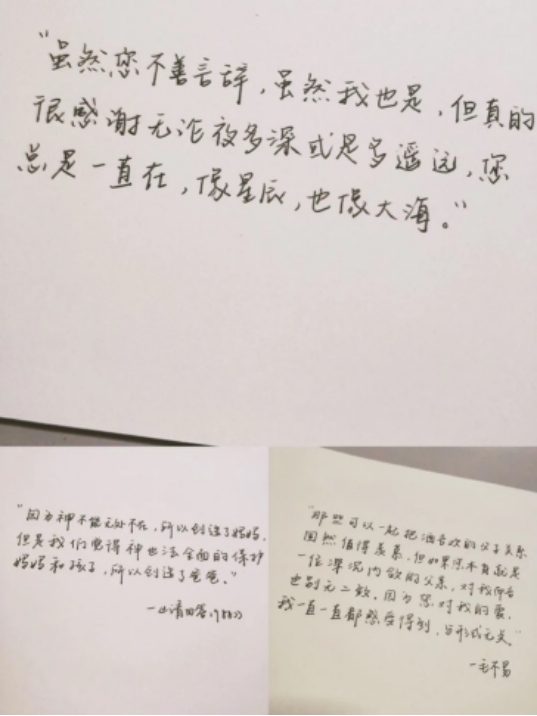 “虽然您不善言辞，虽然我也是，但真的
很感谢无论夜多深或是多遥远，您
总是一直在，像星辰，也像大海。”
“因为神不能无处不在，所以创造了妈妈，
但是我们觉得神也没法全面的保护
妈妈和孩子，所以创造了爸爸。”
—《请回答1988》
“那些可以一起把酒言欢的父子关系
固然值得羡慕，但如果原本有就是
一位深沉内敛的父亲，对我而言
也别无二致。因为您对我的爱，
我一直一直都感受得到，与形式无关”
—毛不易